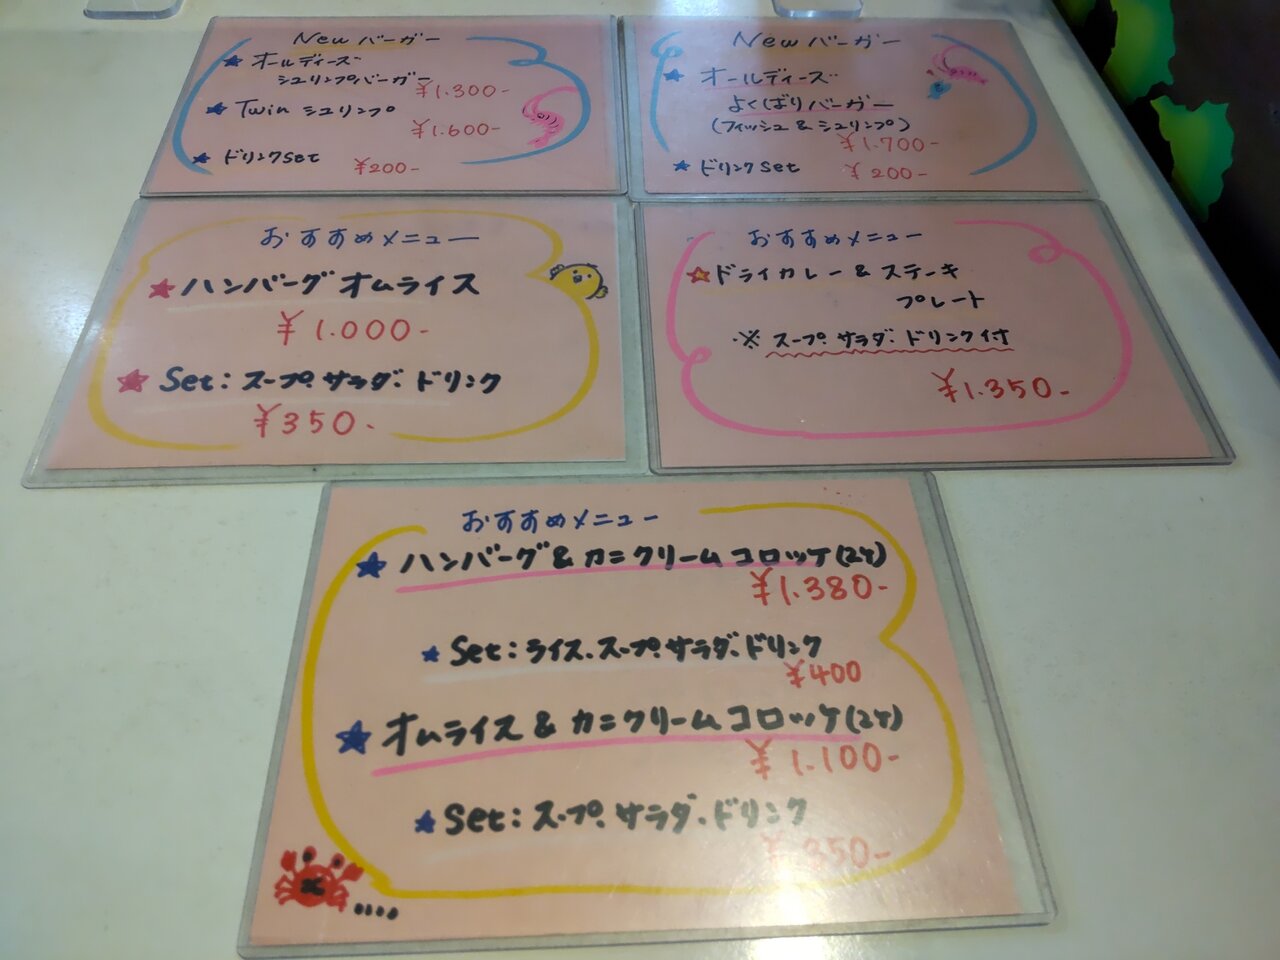 New バーガー
★ オールディーズ
シュリンプバーガー
¥1.300-
★ Twin シュリンプ
¥1.600-
★ ドリンクset
¥200-
New バーガー
★ オールディーズ
よくばりバーガー
(フィッシュ & シュリンプ)
¥1.700-
★ ドリンク Set
¥200-
おすすめメニュー
★ ハンバーグ オムライス
¥1.000-
★ Set: スープ. サラダ. ドリンク
¥350-
おすすめメニュー
★ ドライカレー & ステーキ
プレート
※ スープ. サラダ. ドリンク付
¥1.350-
おすすめメニュー
★ ハンバーグ & カニクリームコロッケ(2ケ)
¥1.380-
★ Set: ライス. スープ. サラダ. ドリンク
¥400
★ オムライス & カニクリームコロッケ(2ケ)
¥1.100-
★ Set: スープ. サラダ. ドリンク
¥350-